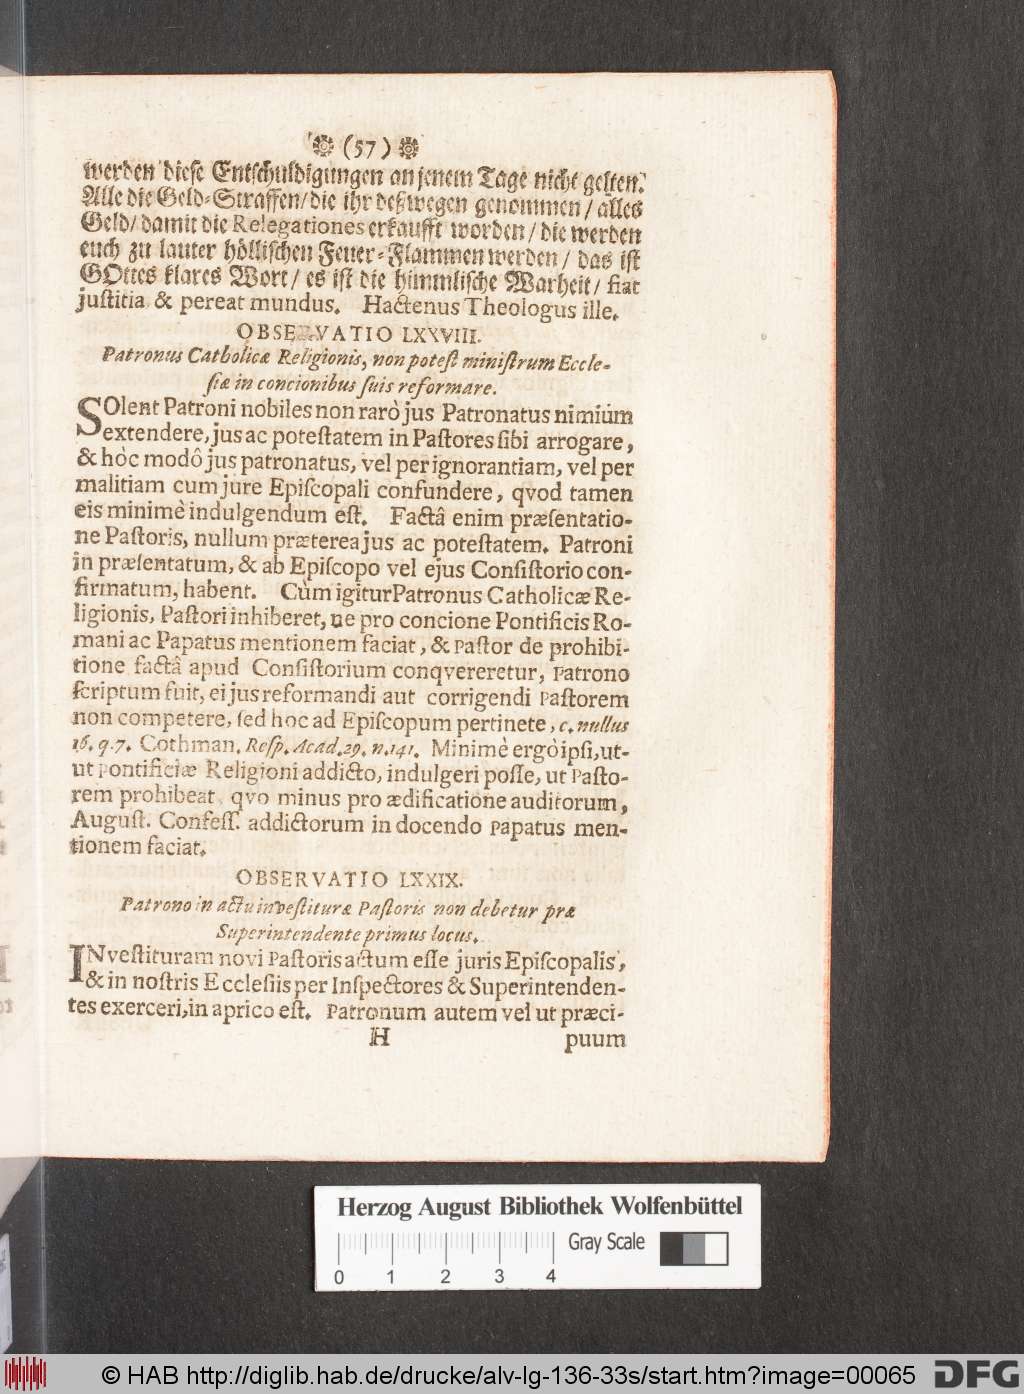 (57)
werden diese Entschuldigungen an jenem Tage nicht gelten.
Alle die Geld-Straffen/ die ihr deßwegen genommen/ alles
Geld/ damit die Relegationes erkaufft worden/ die werden
euch zu lauter höllischen Feuer-Flammen werden/ das ist
GOttes klares Wort/ es ist die himmlische Warheit/ fiat
justitia & pereat mundus. Hactenus Theologus ille.
OBSERVATIO LXXVIII.
Patronus Catholicæ Religionis, non potest ministrum Eccle-
siæ in concionibus suis reformare.
SOlent Patroni nobiles non rarò jus Patronatus nimiùm
extendere, jus ac potestatem in Pastores sibi arrogare,
& hôc modô jus patronatus, vel per ignorantiam, vel per
malitiam cum jure Episcopali confundere, qvod tamen
eis minimè indulgendum est. Factâ enim præsentatio-
ne Pastoris, nullum præterea jus ac potestatem. Patroni
in præsentatum, & ab Episcopo vel ejus Consistorio con-
firmatum, habent. Cùm igitur Patronus Catholicæ Re-
ligionis, Pastori inhiberet, ne pro concione Pontificis Ro-
mani ac Papatus mentionem faciat, & Pastor de prohibi-
tione factâ apud Consistorium conqvereretur, Patrono
scriptum fuit, ei jus reformandi aut corrigendi Pastorem
non competere, sed hoc ad Episcopum pertinete, c. nullus
16. q. 7. Cothman. Resp. Acad. 29. n. 141. Minimè ergò ipsi, ut-
ut Pontificiæ Religioni addicto, indulgeri posse, ut Pasto-
rem prohibeat, qvo minus pro ædificatione auditorum,
August. Confess. addictorum in docendo Papatus men-
tionem faciat.
OBSERVATIO LXXIX.
Patrono in actu investituræ Pastoris non debetur præ
Superintendente primus locus.
INvestituram novi Pastoris actum esse juris Episcopalis,
& in nostris Ecclesiis per Inspectores & Superintenden-
tes exerceri, in aprico est. Patronum autem vel ut præci-
H puum
Herzog August Bibliothek Wolfenbüttel
Gray Scale
0 1 2 3 4
© HAB http://diglib.hab.de/drucke/alv-lg-136-33s/start.htm?image=00065
DFG